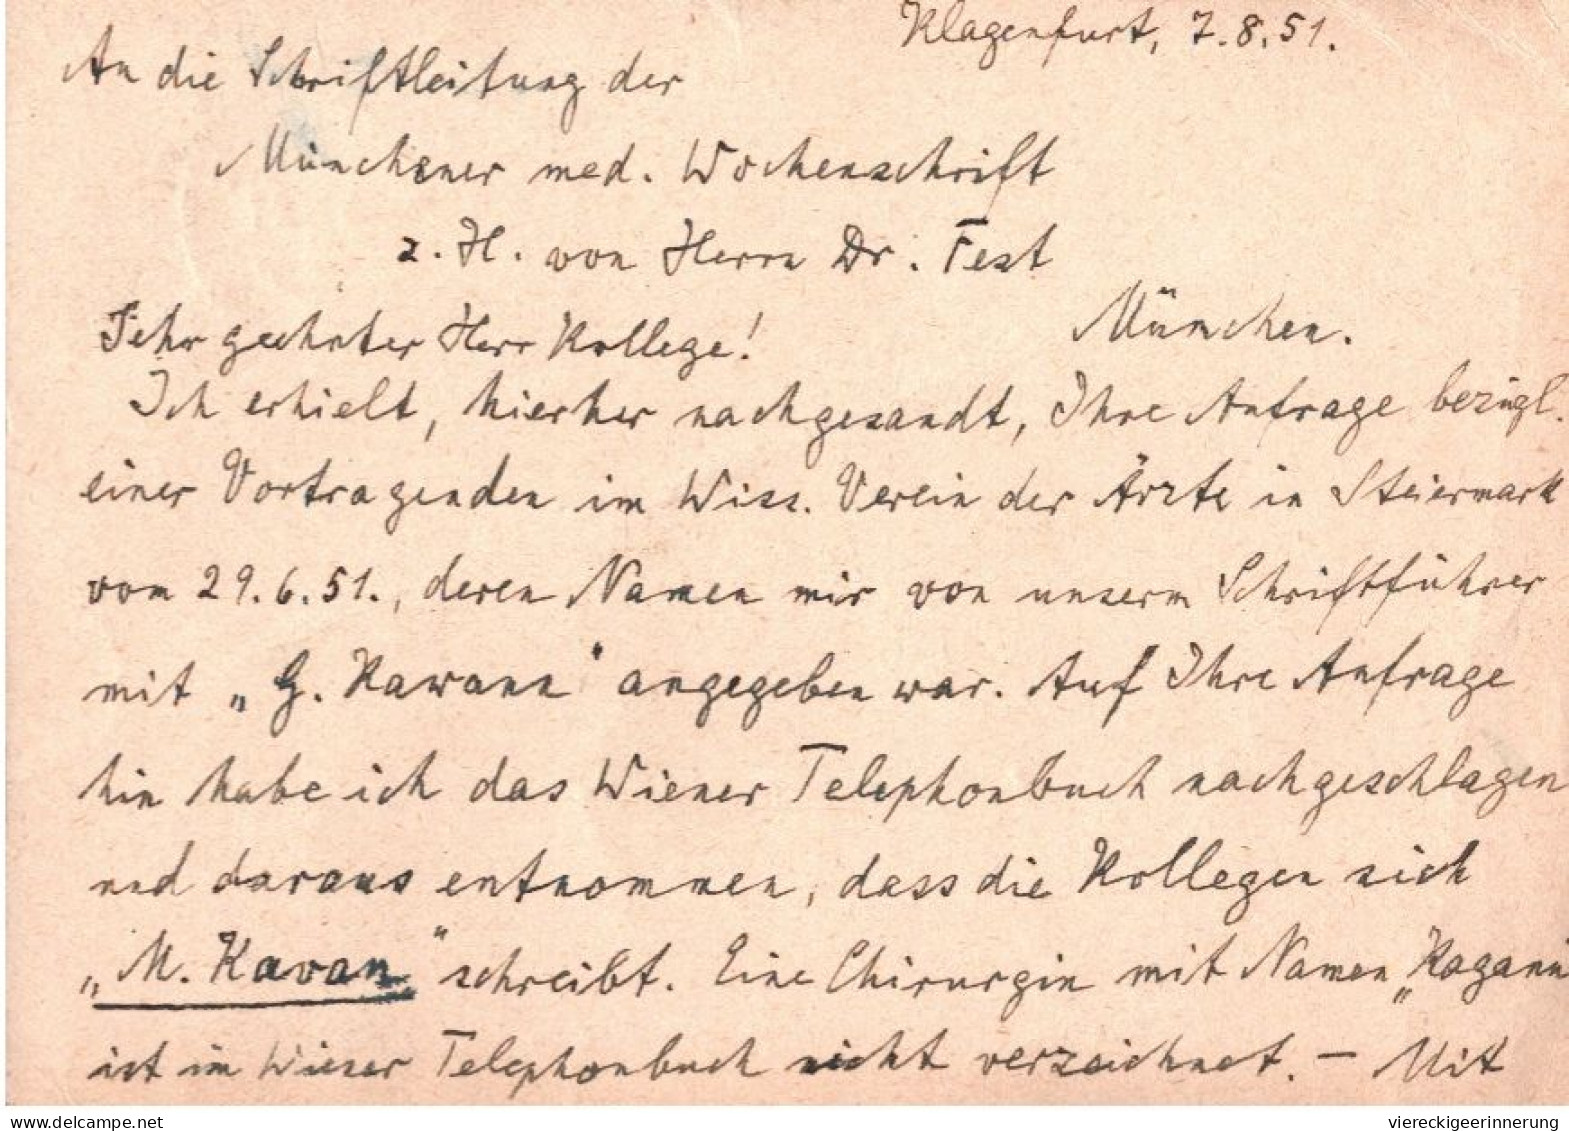 Klagenfurt, 7.8.51.
An die Schriftleitung der
Münchener med. Wochenschrift
z. H. von Herrn Dr. Fest
München.
Sehr geehrter Herr Kollege!
Ich erhielt, hierher nachgesandt, Ihre Anfrage bezügl.
einer Vortragenden im Wiss. Verein der Ärzte in Steiermark
vom 29.6.51., deren Namen mir von unserm Schriftführer
mit „G. Kawann" angegeben war. Auf Ihre Anfrage
hin habe ich das Wiener Telephonbuch nachgeschlagen
und daraus entnommen, dass die Kollegen sich
„M. Kavan" schreibt. Eine Chirurgin mit Namen „Kagann
ist im Wiener Telephonbuch nicht verzeichnet. — Mit
www.delcampe.net
viereckigeerinnerung